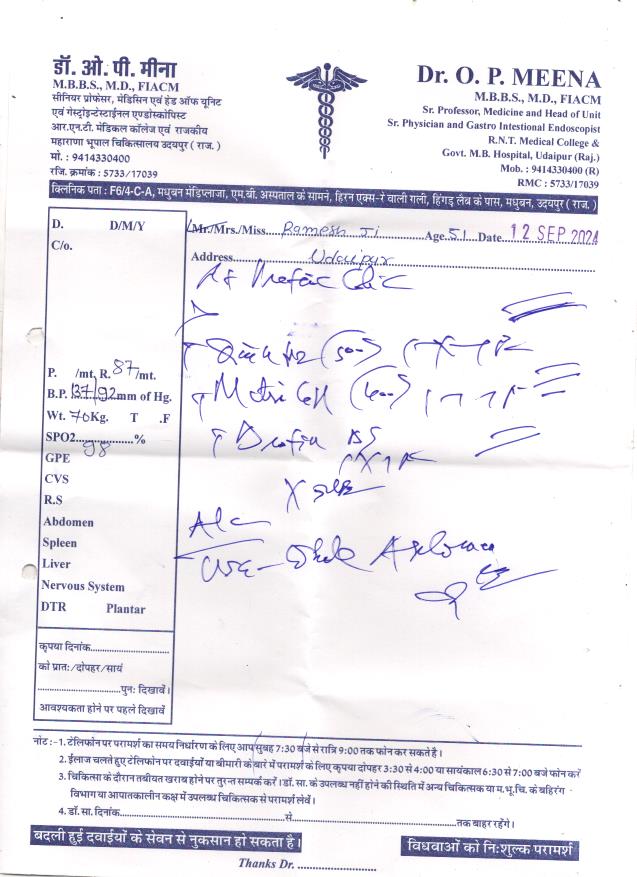 डॉ. ओ. पी. मीना
M.B.B.S., M.D., FIACM
सीनियर प्रोफेसर, मेडिसिन एवं हेड ऑफ यूनिट
एवं गेस्ट्रोइन्टेस्टाईनल एण्डोस्कोपिस्ट
आर.एन.टी. मेडिकल कॉलेज एवं राजकीय
महाराणा भूपाल चिकित्सालय उदयपुर ( राज. )
मो. : 9414330400
रजि. क्रमांक : 5733/17039
Dr. O. P. MEENA
M.B.B.S., M.D., FIACM
Sr. Professor, Medicine and Head of Unit
Sr. Physician and Gastro Intestional Endoscopist
R.N.T. Medical College &
Govt. M.B. Hospital, Udaipur (Raj.)
Mob. : 9414330400 (R)
RMC : 5733/17039
क्लिनिक पता : F6/4-C-A, मधुबन मेडिप्लाजा, एम.बी. अस्पताल के सामने, हिरन एक्स-रे वाली गली, हिंगड़ लैब के पास, मधुबन, उदयपुर ( राज. )
D. D/M/Y
C/o.
Mr./Mrs./Miss. Ramesh Ji Age. 51 Date 12 SEP 2024
Address Udaipur
P. /mt, R. 87/mt.
B.P. 137/92 mm of Hg.
Wt. 70 Kg. T .F
SPO2 98 %
GPE
CVS
R.S
Abdomen
Spleen
Liver
Nervous System
DTR Plantar
कृपया दिनांक
को प्रातः/दोपहर/सायं
पुनः दिखावें।
आवश्यकता होने पर पहले दिखावें
नोट :- 1. टेलिफोन पर परामर्श का समय निर्धारण के लिए आप सुबह 7:30 बजे से रात्रि 9:00 तक फोन कर सकते है।
2. ईलाज चलते हुए टेलिफोन पर दवाईयों या बीमारी के बारे में परामर्श के लिए कृपया दोपहर 3:30 से 4:00 या सायंकाल 6:30 से 7:00 बजे फोन करें
3. चिकित्सा के दौरान तबीयत खराब होने पर तुरन्त सम्पर्क करें। डॉ. सा. के उपलब्ध नहीं होने की स्थिति में अन्य चिकित्सक या म.भू.चि. के बहिरंग
विभाग या आपातकालीन कक्ष में उपलब्ध चिकित्सक से परामर्श लेवें।
4. डॉ. सा. दिनांक से तक बाहर रहेंगे।
बदली हुई दवाईयों के सेवन से नुकसान हो सकता है।
विधवाओं को निःशुल्क परामर्श
Thanks Dr.